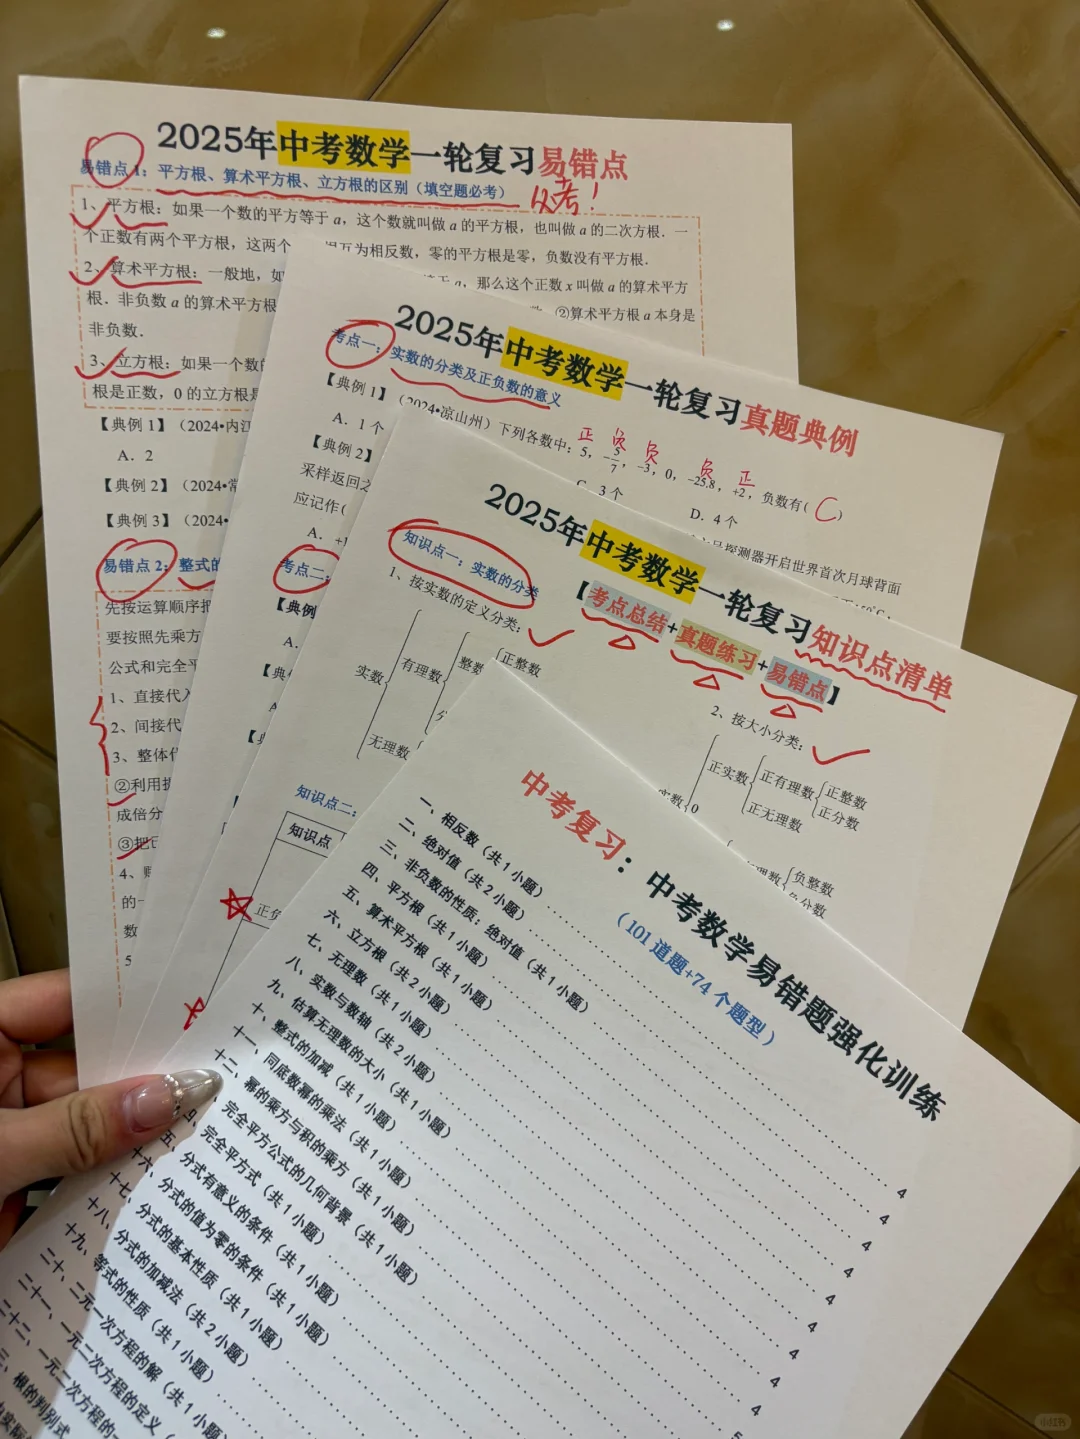 2025年中考数学一轮复习易错点
易错点1：平方根、算术平方根、立方根的区别（填空题必考）
必考！
1、平方根：如果一个数的平方等于 a，这个数就叫做 a 的平方根，也叫做 a 的二次方根．一
个正数有两个平方根，这两个
互为相反数，零的平方根是零，负数没有平方根．
2、算术平方根：一般地，如
a，那么这个正数 x 叫做 a 的算术平方
根．非负数 a 的算术平方根
②算术平方根 a 本身是
非负数．
3、立方根：如果一个数的
根是正数，0 的立方根是
【典例1】（2024•内江
A．2
【典例2】（2024•常
【典例3】（2024•
易错点2：整式的
先按运算顺序把
要按照先乘方
公式和完全平
1、直接代入
2、间接代
3、整体代
②利用提
成倍分
③把已
4、
的一
数
5
2025年中考数学一轮复习真题典例
考点一：实数的分类及正负数的意义
正 负 负 负 正
【典例1】（2024•凉山州）下列各数中：5，−5/7，−3，0，−25.8，+2，负数有( C )
A．1个
C．3个
D．4个
【典例2】
探测器开启世界首次月球背面
采样返回之
应记作（
A．+1
考点二：
【典例
A．
【典例
2025年中考数学一轮复习知识点清单
【考点总结+真题练习+易错点】
知识点一：实数的分类
1、按实数的定义分类：
实数
有理数
整数
正整数
无理数
2、按大小分类：
实数
正实数
正有理数
正整数
正分数
正无理数
0
负整数
负分数
知识点二：
知识点
正负
中考复习：中考数学易错题强化训练
（101道题+74个题型）
一、相反数（共1小题）
4
二、绝对值（共2小题）
4
三、非负数的性质：绝对值（共1小题）
4
四、平方根（共1小题）
4
五、算术平方根（共1小题）
4
六、立方根（共2小题）
4
七、无理数（共1小题）
4
八、实数与数轴（共2小题）
4
九、估算无理数的大小（共1小题）
4
十、整式的加减（共1小题）
5
十一、同底数幂的乘法（共1小题）
十二、幂的乘方与积的乘方（共1小题）
完全平方公式的几何背景（共1小题）
四、完全平方式（共1小题）
五、分式有意义的条件（共1小题）
十六、分式的值为零的条件（共1小题）
十七、分式的基本性质（共1小题）
十八、分式的加减法（共2小题）
十九、等式的性质（共1小题）
二十、二元一次方程的解（共1小题）
二十一、一元二次方程的定义（
二十二、一元二次方程的
三、根的判别式
小红书